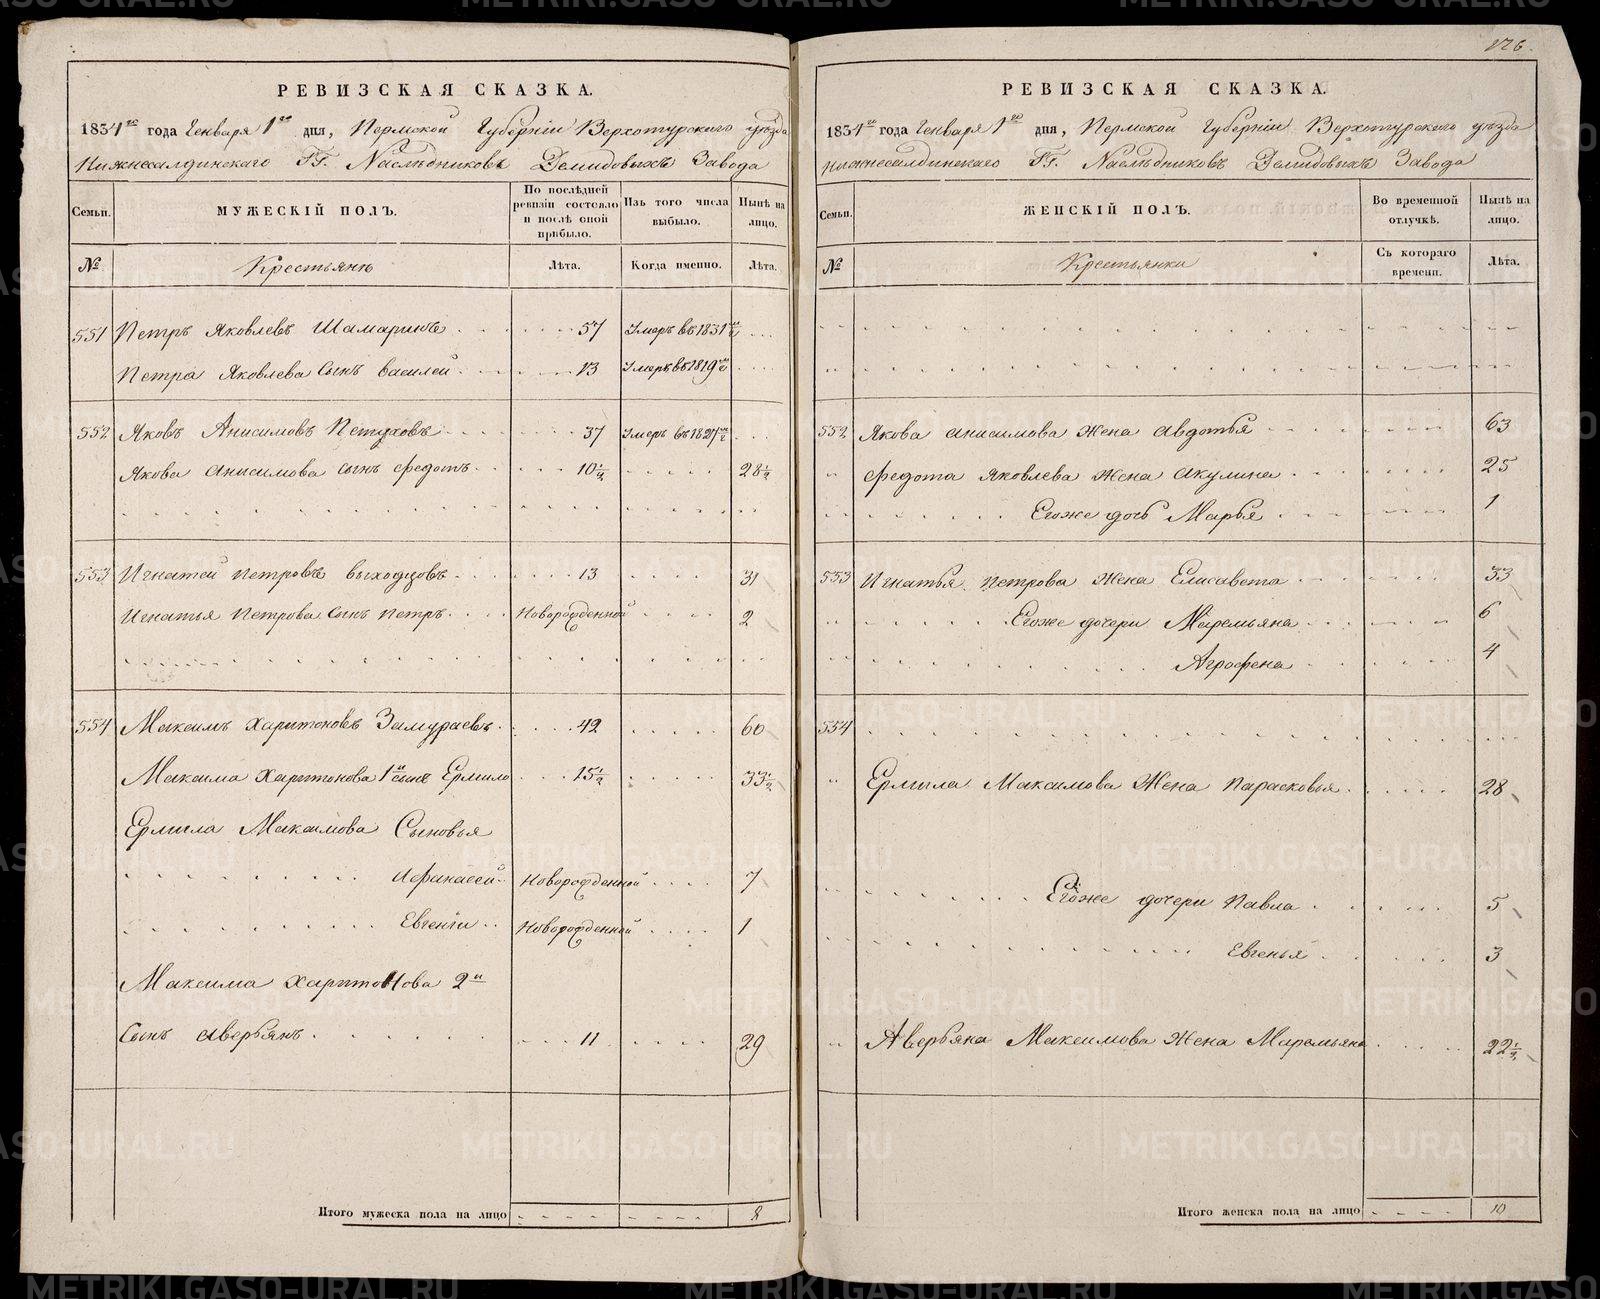 РЕВИЗСКАЯ СКАЗКА.
1834го года Генваря 1го дня, Пермской Губерніи Верхотурского уѣзда
Нижнесалдинскаго ГГ. Наслѣдниковъ Демидовыхъ Завода
Семьи. МУЖЕСКІЙ ПОЛЪ. По послѣдней ревизіи состояло и послѣ оной прибыло. Изъ того числа выбыло. Нынѣ на лицо.
№ Крестьянѣ Лѣта. Когда именно. Лѣта.
551 Петръ Яковлевъ Шамаринъ 57 Умеръ въ 1831мъ
Петра Яковлева Сынъ Василей 13 Умеръ въ 1819мъ
552 Яковъ Анисимовъ Петуховъ 37 Умеръ въ 1827мъ
Якова Анисимова Сынъ Федотъ 10½ 28½
553 Игнатей Петровъ Выходцовъ 13 31
Игнатья Петрова Сынъ Петръ Новорожденной 2
554 Максимъ Харитоновъ Замураевъ 42 60
Максима Харитонова 1й сынъ Ермило 15½ 33½
Ермила Максимова Сыновья
Афанасей Новорожденной 7
Евгеніи Новорожденной 1
Максима Харитонова 2й
Сынъ Аверьянъ 11 29
Итого мужеска пола на лицо 8
126.
РЕВИЗСКАЯ СКАЗКА.
1834го года Генваря 1го дня, Пермской Губерніи Верхотурскаго уѣзда
Нижнесалдинскаго ГГ. Наслѣдниковъ Демидовыхъ Завода
Семьи. ЖЕНСКІЙ ПОЛЪ. Во временной отлучкѣ. Нынѣ на лицо.
№ Крестьянки Съ котораго времени. Лѣта.
552 Якова Анисимова Жена Авдотья 63
Федота Яковлева Жена Акулина 25
Егоже дочь Марья 1
553 Игнатья Петрова Жена Елисавета 33
Егоже дочери Маремьяна 6
Агрофена 4
554
Ермила Максимова Жена Парасковья 28
Егоже дочери Павла 5
Евгенья 3
Аверьяна Максимова Жена Маремьяна 22½
Итого женска пола на лицо 10
METRIKI.GASO-URAL.RU